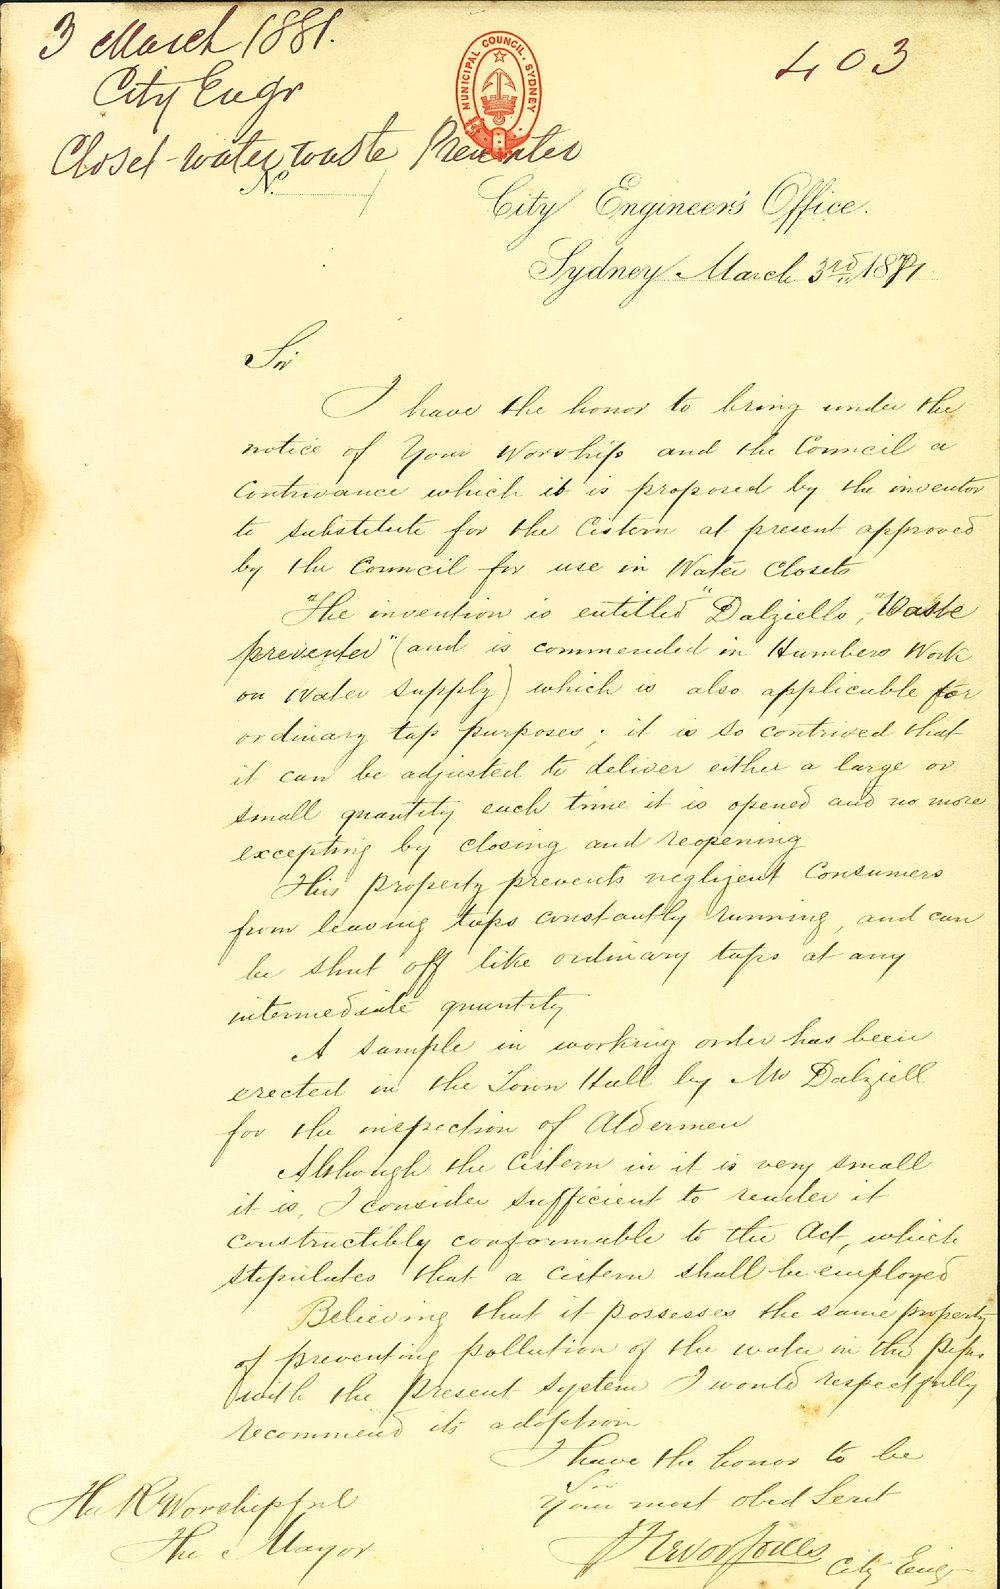 3 March 1881.
City Engr
403
Closet water waste Preventer
MUNICIPAL COUNCIL. SYDNEY
No
City Engineer's Office.
Sydney March 3rd 1881
Sir
I have the honor to bring under the
notice of Your Worship and the Council a
Contrivance which it is proposed by the inventor
to substitute for the Cistern at present approved
by the Council for use in Water Closets
The invention is entitled "Dalziells, "Waste
preventer" (and is commended in Humbers Work
on Water Supply) which is also applicable for
ordinary tap purposes; it is so contrived that
it can be adjusted to deliver either a large or
small quantity each time it is opened and no more
excepting by closing and reopening
This property prevents negligent Consumers
from leaving taps constantly running, and can
be shut off like ordinary taps at any
intermediate quantity
A sample in working order has been
erected in the Town Hall by Mr Dalziell
for the inspection of Aldermen
Although the Cistern in it is very small
it is, I consider sufficient to render it
constructibly conformable to the Act, which
stipulates that a cistern shall be employed
Believing that it possesses the same property
of preventing pollution of the water in the pipes
with the present system I would respectfully
recommend its adoption
I have the honor to be
Sir
Your most obed Servt
Trevor Jones
City Engr
The Rt Worshipful
The Mayor